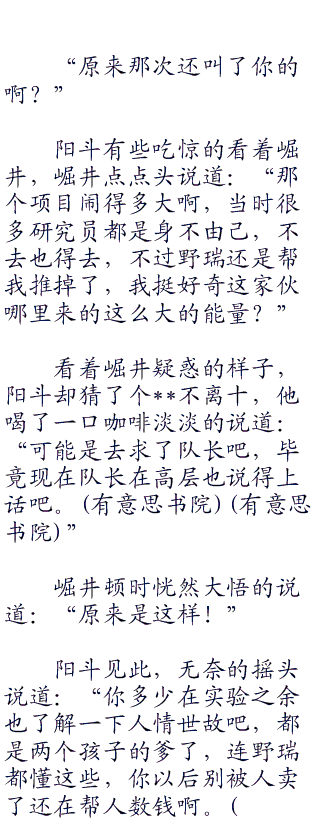 “原来那次还叫了你的
啊？”
阳斗有些吃惊的看着崛
井，崛井点点头说道：“那
个项目闹得多大啊，当时很
多研究员都是身不由己，不
去也得去，不过野瑞还是帮
我推掉了，我挺好奇这家伙
哪里来的这么大的能量？”
看着崛井疑惑的样子，
阳斗却猜了个**不离十，他
喝了一口咖啡淡淡的说道：
“可能是去求了队长吧，毕
竟现在队长在高层也说得上
话吧。(有意思书院)(有意思
书院)”
崛井顿时恍然大悟的说
道：“原来是这样！”
阳斗见此，无奈的摇头
说道：“你多少在实验之余
也了解一下人情世故吧，都
是两个孩子的爹了，连野瑞
都懂这些，你以后别被人卖
了还在帮人数钱啊。(